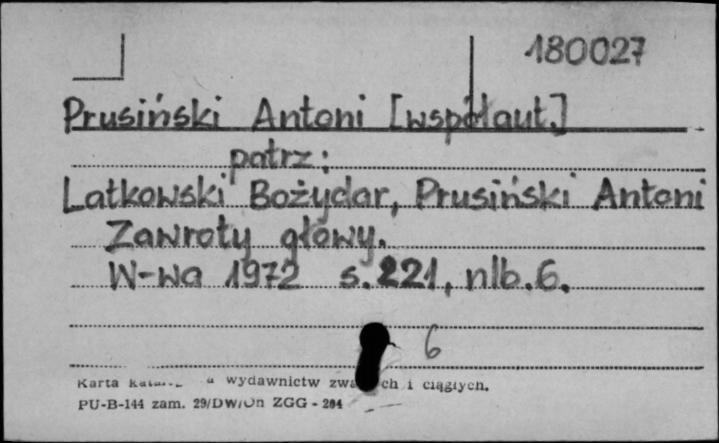 180027
Prusiński Antoni [współaut.]
patrz:
Latkowski Bożydar, Prusiński Antoni
Zawroty głowy.
W-wa 1972 s. 221, nlb. 6.
6
Karta wydawnictw i ciągłych.
PU-B-144 zam. 29/DW/On ZGG - 204